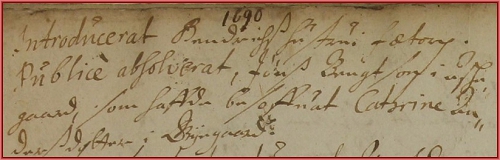 1690
Introducerat Hendrichs hustrui
Publicè absolverat, Jöns Bengtson i
gaard, som hafde besoffuat Cathrine An„
ders dotter i